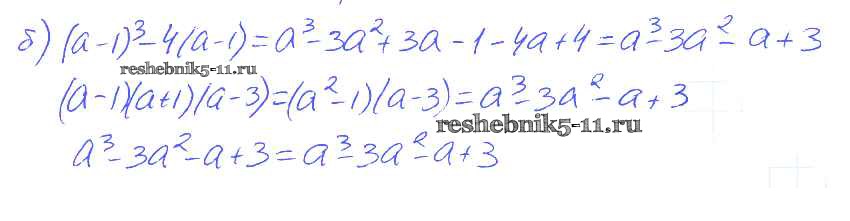 б) (a-1)³-4(a-1)=a³-3a²+3a-1-4a+4=a³-3a²-a+3
reshebnik5-11.ru
(a-1)(a+1)(a-3)=(a²-1)(a-3)=a³-3a²-a+3
reshebnik5-11.ru
a³-3a²-a+3=a³-3a²-a+3